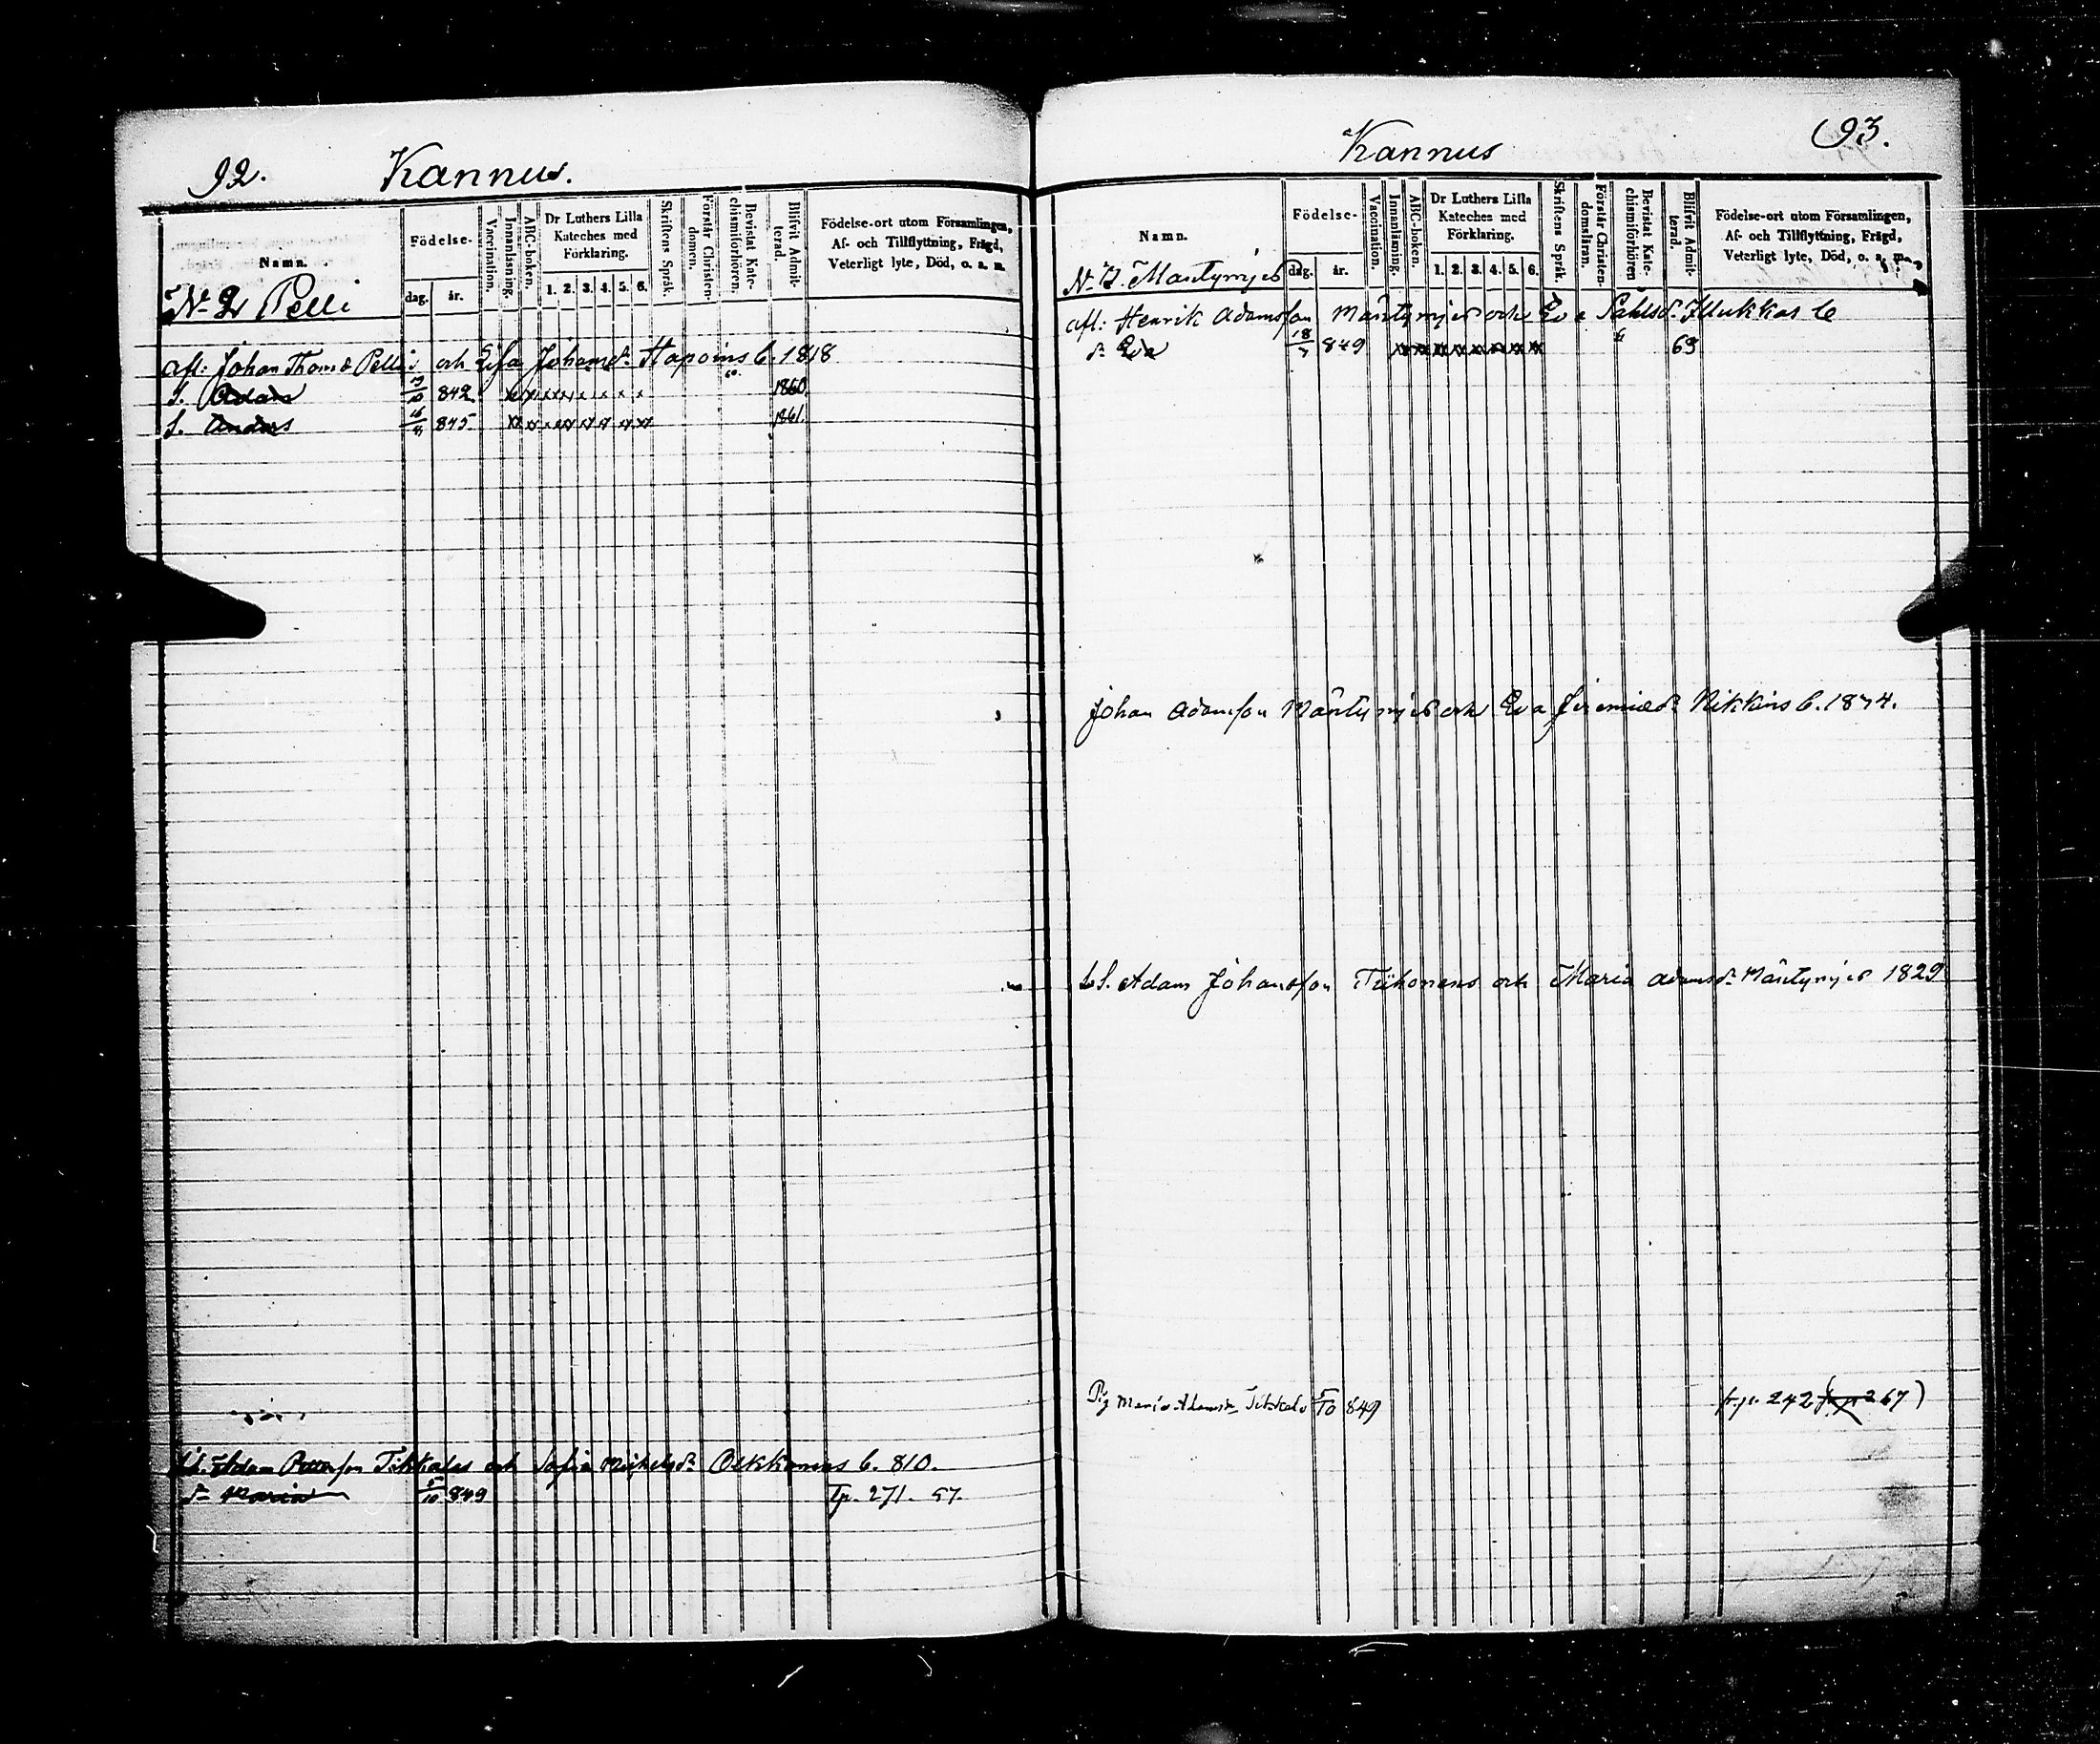 92. Kannus.
Namn.
Födelse-
dag. år.
Vaccination.
Innanläsning.
ABC-boken.
Dr Luthers Lilla Kateches med Förklaring.
1. 2. 3. 4. 5. 6.
Skriftens Språk.
Förstår Christendomen.
Bevistat Katechismiförhören.
Blifvit Admitterad.
Födelse-ort utom Församlingen, Af- och Tillflyttning, Frägd, Veterligt lyte, Död, o. a. m.
No 2 Pelli
afl: Johan Thom Pelli och Johansdr Haponis b. 1818
S. Adam 29/10 842 1860.
S. Anders 845 1861.
Adam Pettersson Tikkalas och Sofia Michelsdr b. 810.
dr Maria 5/10 849 Tp. 271. 57.
Kannus 93.
Namn.
Födelse-
dag. år.
Vaccination.
Innanläsning.
ABC-boken.
Dr Luthers Lilla Kateches med Förklaring.
1. 2. 3. 4. 5. 6.
Skriftens Språk.
Förstår Christendomsläran.
Bevistat Katechismiförhören
Blifvit Admitterad.
Födelse-ort utom Församlingen, Af- och Tillflyttning, Frägd, Veterligt lyte, Död, o. a. m.
Mäntynjes
afl: Henrik Adamsson Mäntynjes och Eva Pahlsdr
dr Eva 18/7 849 63
Johan Adamsson Mäntynjes och Eva Jeremiedr Nikkins b. 1874.
Adam Johansson Tiihonens och Maria adamsdr Mäntynjes 1829
Pig Maria Adamsdr 5/10 849 242 267)